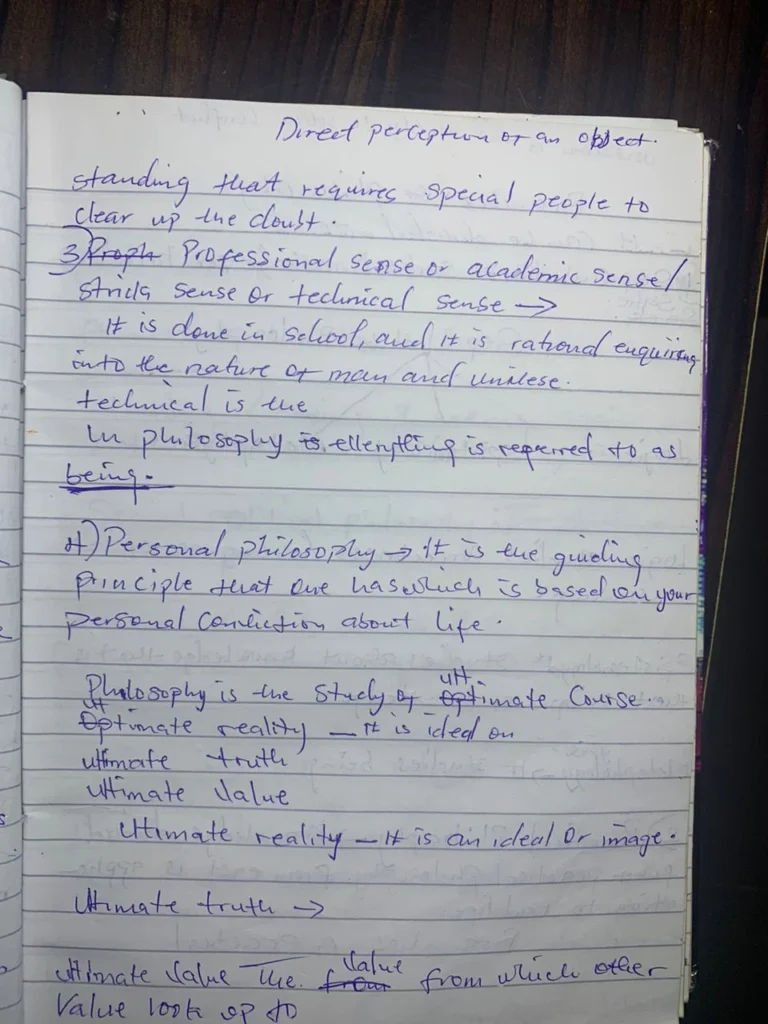 Direct perception of an object.
standing that requires special people to
clear up the doubt.
3) Proph Professional sense or academic sense/
stricts sense or technical sense →
It is done in school, and it is rational enquiring
into the nature of man and
technical is the
In philosophy is everything is referred to as
being.
4) Personal philosophy → it is the guiding
principle that one has which is based on your
personal conviction about life.
ult
Philosophy is the study of Optimate Course.
ult
Optimate reality - it is ideal on
ultimate truth
ultimate Value
Ultimate reality - it is an ideal or image.
Ultimate truth →
Value
ultimate Value - The from from which other
Value look up to